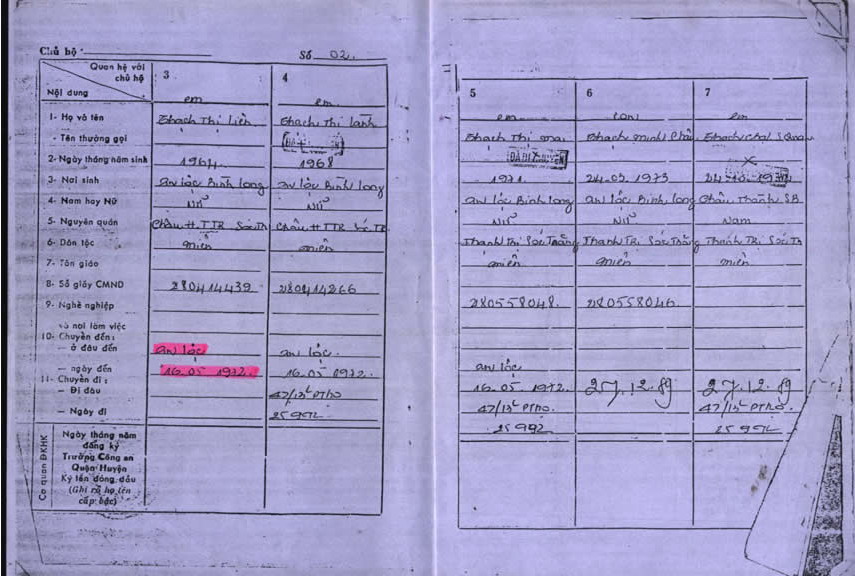 Chủ hộ
Số 02.
Quan hệ với chủ hộ
Nội dung
3
4
em
em.
1- Họ và tên
Thạch Thị Liên
Thạch Thị Lành
- Tên thường gọi
2- Ngày tháng năm sinh
1964
1968
3- Nơi sinh
An Lộc Bình Long
An Lộc Bình Long
4- Nam hay Nữ
Nữ
Nữ
5- Nguyên quán
Châu H. TTR Sóc Tr
Châu H TTR Sóc TR
6- Dân tộc
miên
miên
7- Tôn giáo
8- Số giấy CMND
280414439
280414266
9- Nghề nghiệp
và nơi làm việc
10- Chuyển đến:
— ở đâu đến
An Lộc
An Lộc.
— ngày đến
16.05 1972.
16.05 1972.
11- Chuyển đi:
— Đi đâu
47/13
— Ngày đi
Cơ quan ĐKHK
Ngày tháng năm
đăng ký
Trưởng Công an
Quận Huyện
Ký tên đóng dấu
(Ghi rõ họ tên
cấp bậc)
5
6
7
em
em
Thạch Thị Mai
Thạch Minh
Thạch
1971
24-02.1973
An Lộc Bình Long
An Lộc Bình Long
Châu Thành SB
Nữ
Nữ
Nam
Thạnh Trị Sóc Trăng
Thạnh TRị Sóc Trăng
Thạnh TRị Sóc Tr
miên
miên
miên
280558048.
280558046
An Lộc
16.05 1972.
27.12.89
27.12.89
47/13
47/13